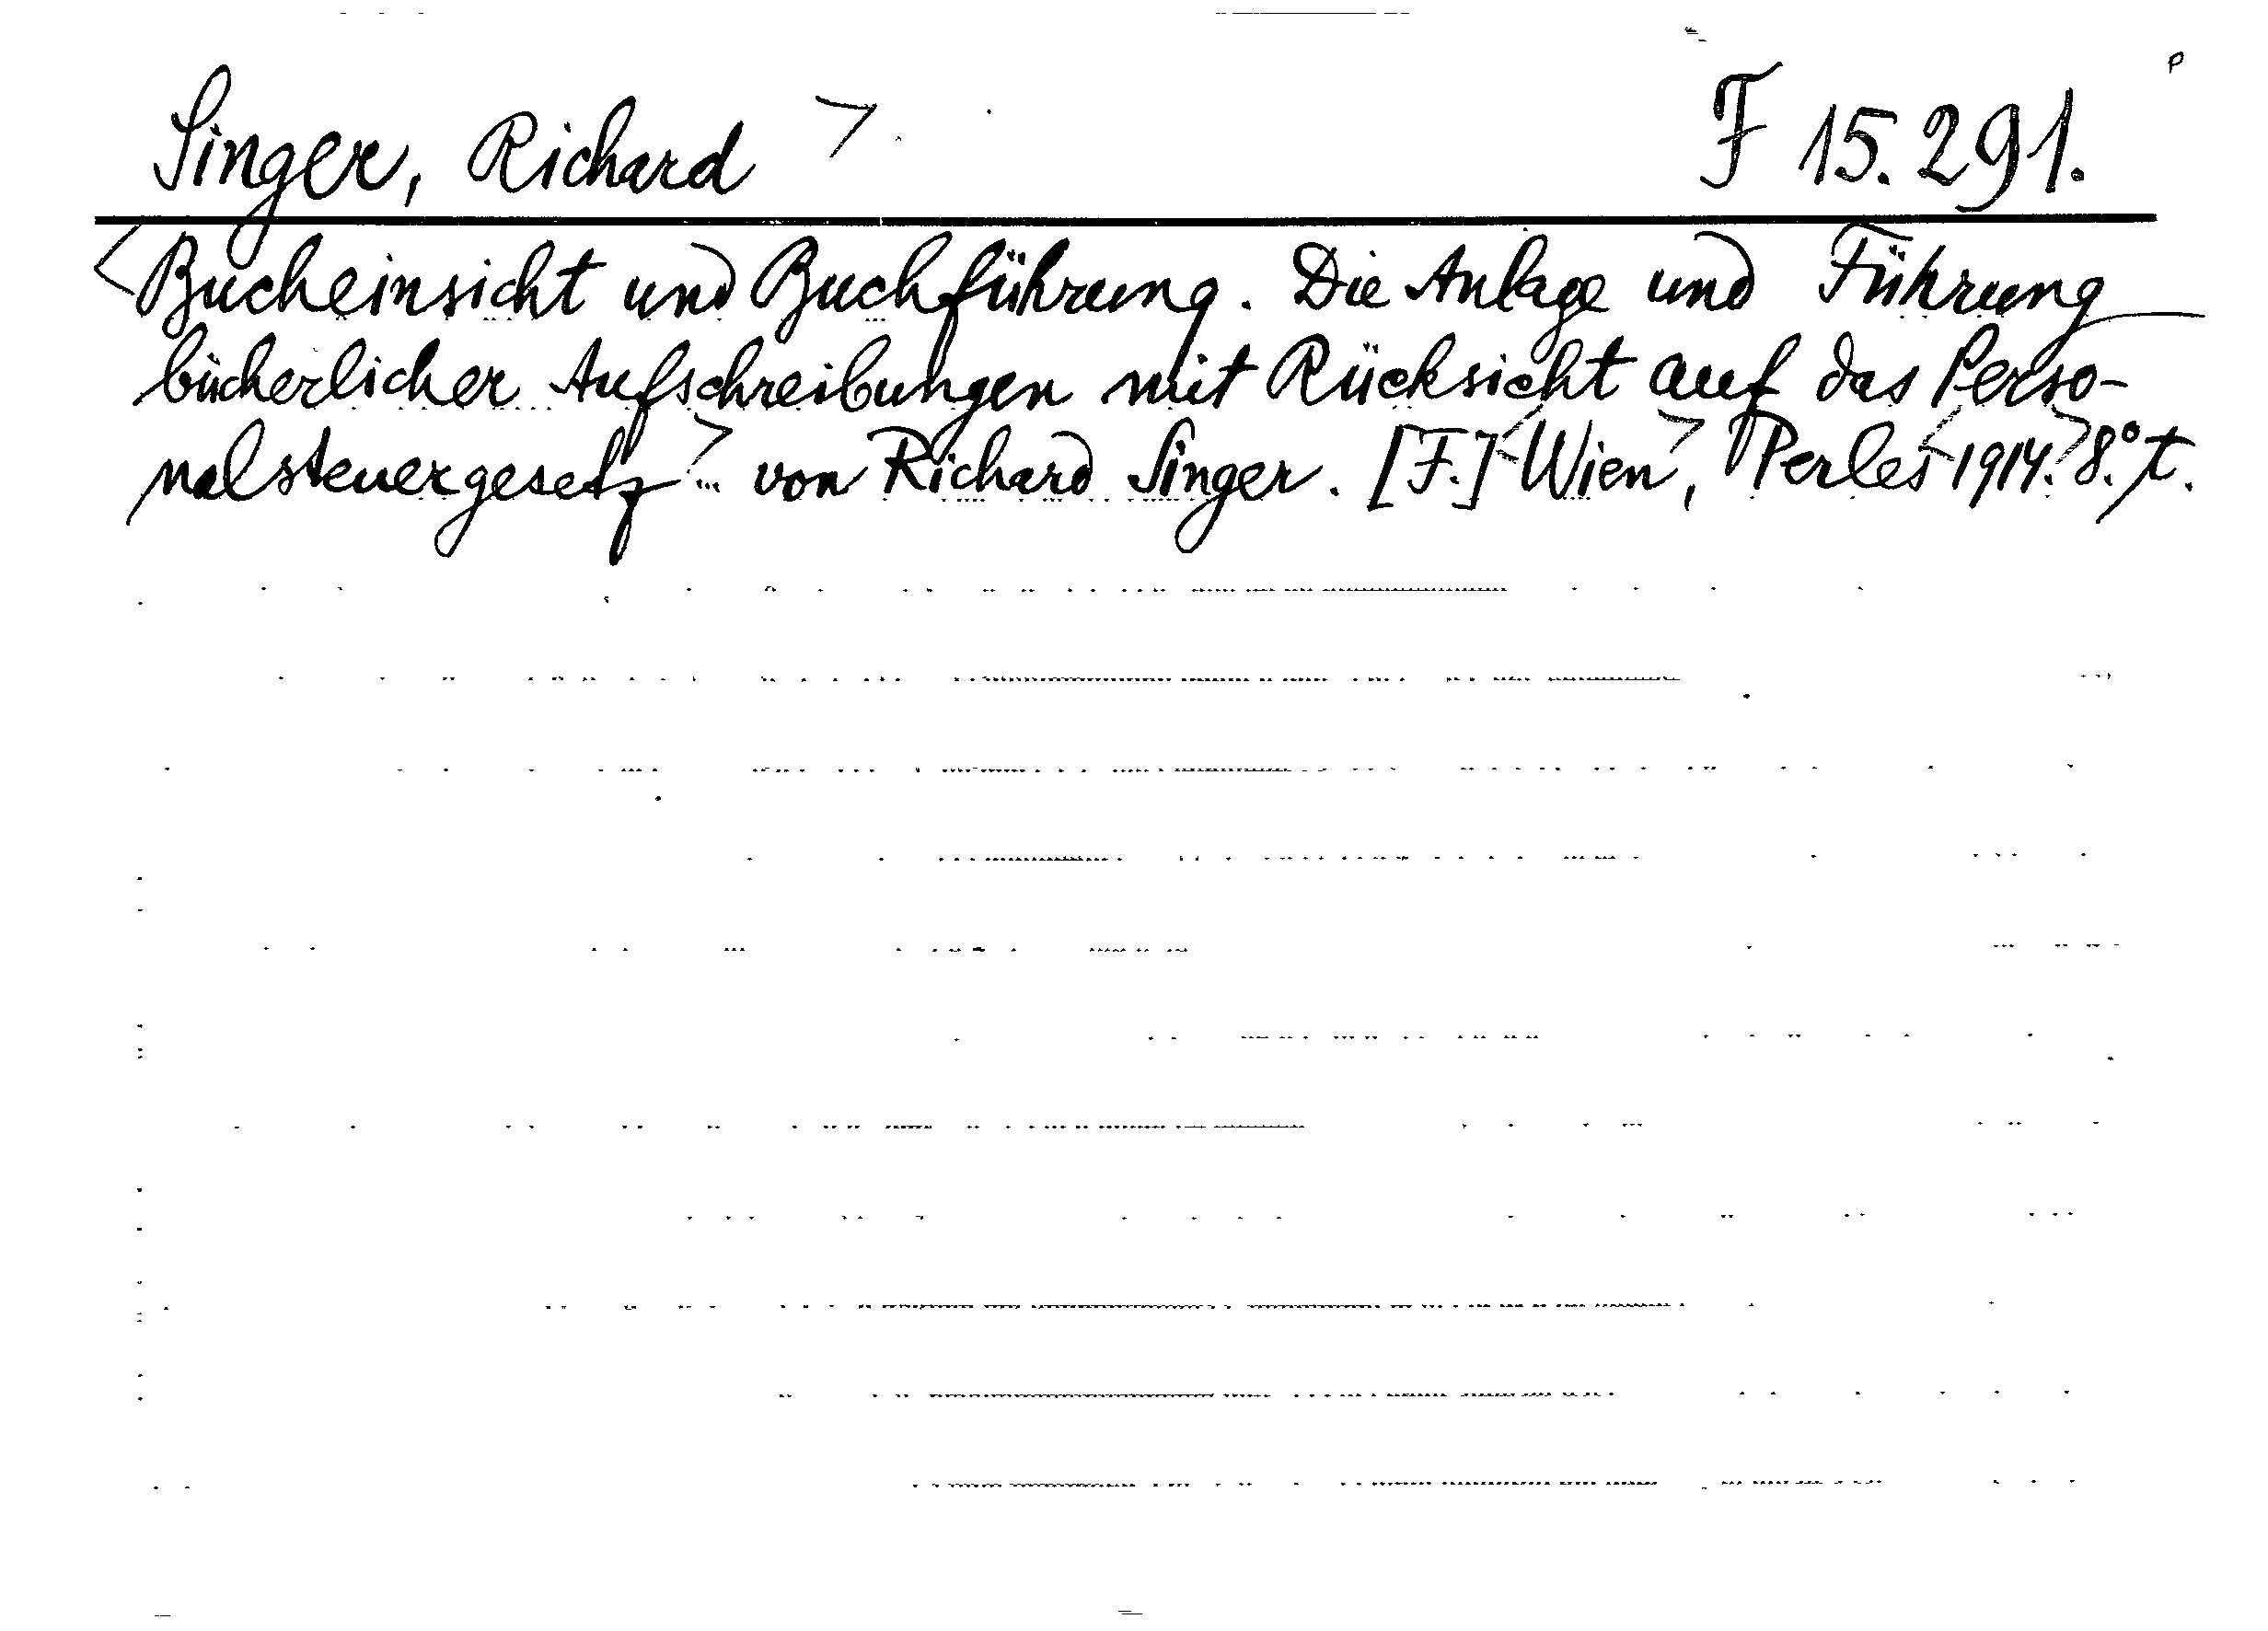 Singer, Richard > F 15.291.
<Bucheinsicht und Buchführung. Die Anlage und Führung
bücherlicher Aufschreibungen mit Rücksicht auf das Perso-
nalsteuergesetz> von Richard Singer. [F.] <Wien>, Perles <1914.> 8.° t.